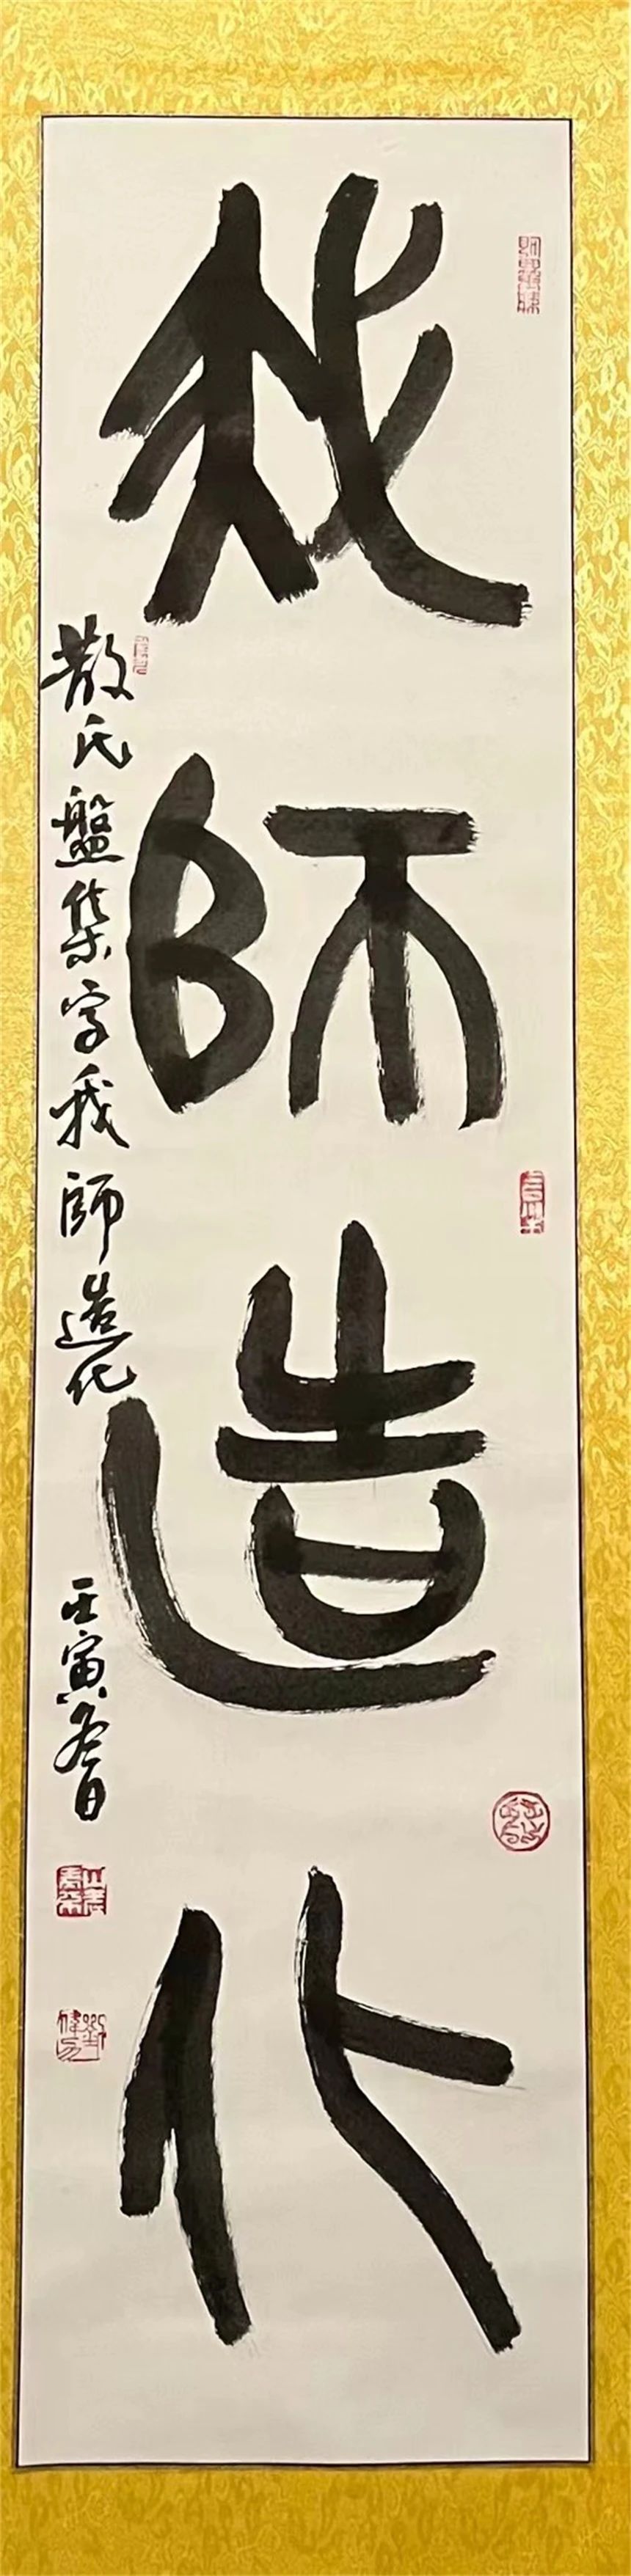 我師造化
散氏盤集字我師造化
壬寅冬日